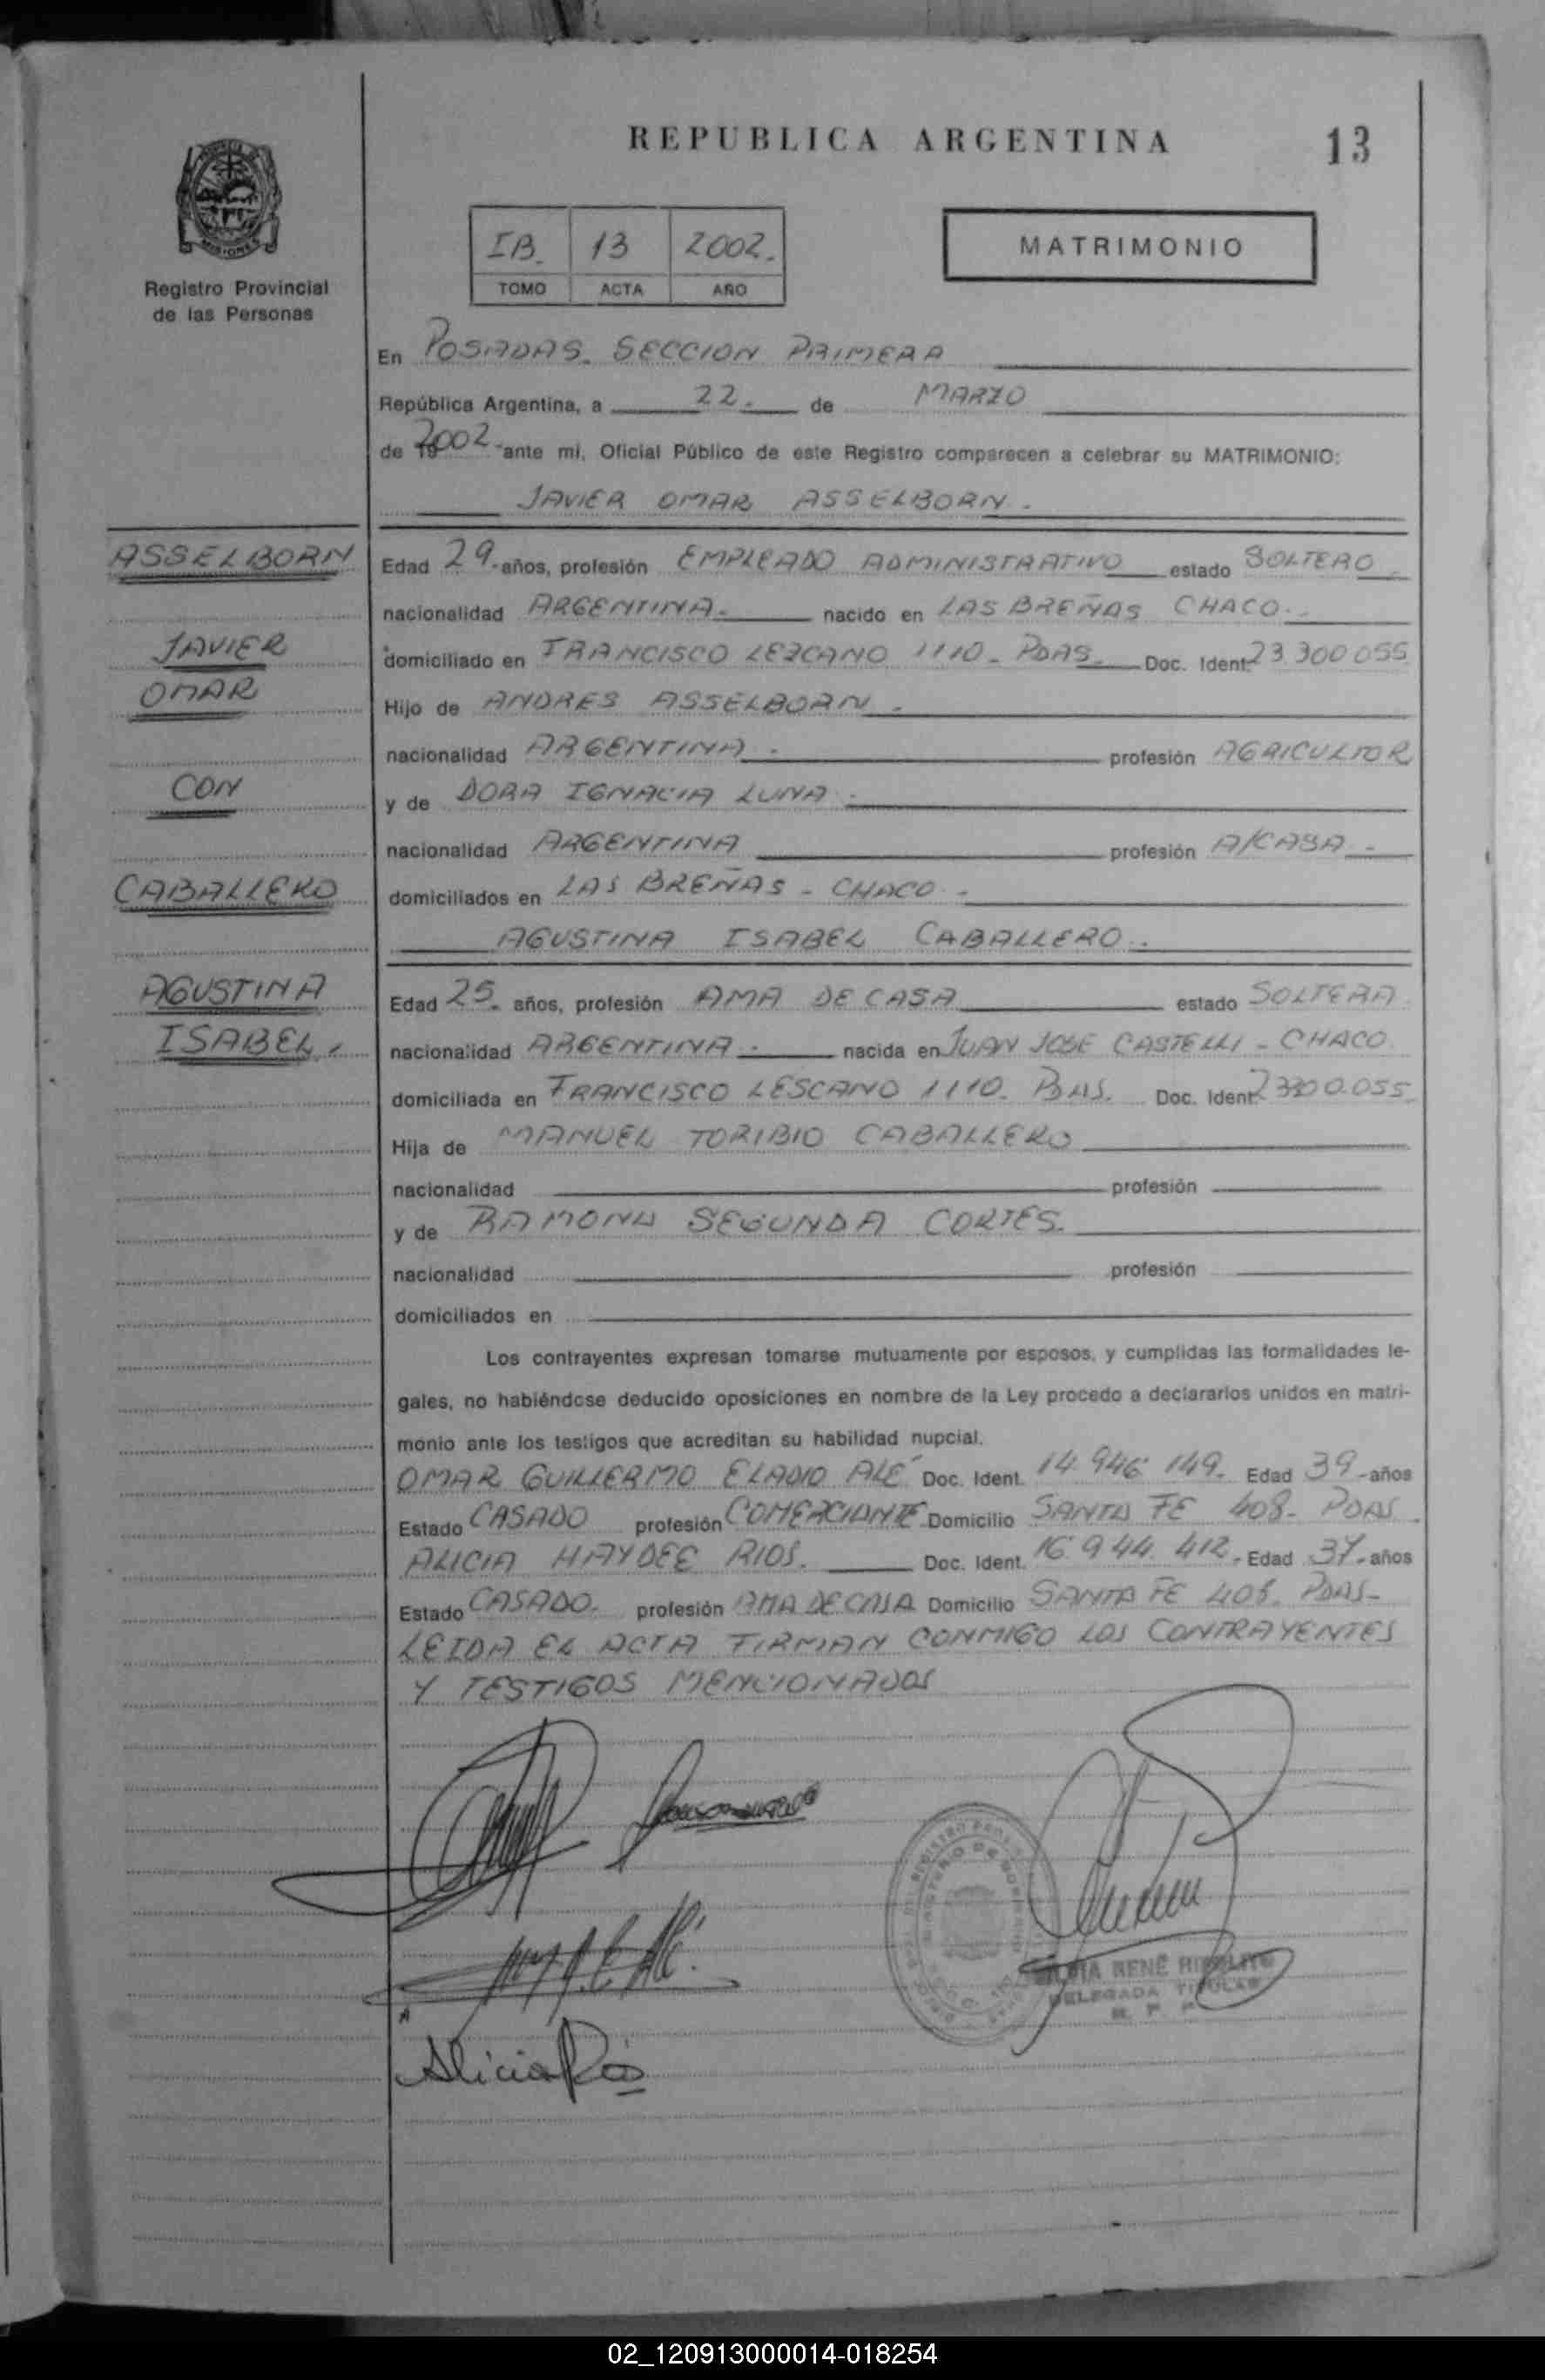 REPUBLICA ARGENTINA
13
MISIONES
Registro Provincial
de las Personas
IB. 13 2002.
TOMO ACTA AÑO
MATRIMONIO
En POSADAS. SECCION PRIMERA
República Argentina, a 22. de MARZO
de 2002 ante mi, Oficial Público de este Registro comparecen a celebrar su MATRIMONIO:
JAVIER OMAR ASSELBORN.
ASSELBORN
JAVIER
OMAR
CON
CABALLERO
AGUSTINA
ISABEL.
Edad 29. años, profesión EMPLEADO ADMINISTRATIVO estado SOLTERO
nacionalidad ARGENTINA. nacido en LAS BREÑAS CHACO.
domiciliado en FRANCISCO LEZCANO 1110. PDAS. Doc. Ident. 23 300 055
Hijo de ANDRES ASSELBORN.
nacionalidad ARGENTINA. profesión AGRICULTOR
y de DORA IGNACIA LUNA.
nacionalidad ARGENTINA profesión A/CASA.
domiciliados en LAS BREÑAS - CHACO.
AGUSTINA ISABEL CABALLERO.
Edad 25. años, profesión AMA DE CASA estado SOLTERA
nacionalidad ARGENTINA. nacida en JUAN JOSE CASTELLI - CHACO
domiciliada en FRANCISCO LESCANO 1110. PDAS. Doc. Ident. 23300.055.
Hija de MANUEL TORIBIO CABALLERO
nacionalidad profesión
y de RAMONA SEGUNDA CORTES.
nacionalidad profesión
domiciliados en
Los contrayentes expresan tomarse mutuamente por esposos, y cumplidas las formalidades le-
gales, no habiéndose deducido oposiciones en nombre de la Ley procedo a declararlos unidos en matri-
monio ante los testigos que acreditan su habilidad nupcial.
OMAR GUILLERMO ELADIO ALÉ Doc. Ident. 14.946 149. Edad 39 años
Estado CASADO profesión COMERCIANTE Domicilio SANTA FE 408. PDAS.
ALICIA HAYDEE RIOS. Doc. Ident. 16.944.412. Edad 37. años
Estado CASADO. profesión AMA DE CASA Domicilio SANTA FE 408. PDAS.
LEIDA EL ACTA FIRMAN CONMIGO LOS CONTRAYENTES
Y TESTIGOS MENCIONADOS
Alicia Ríos
RENÉ HIPOLITO
DELEGADA TITULAR
R. P. P.
02_120913000014-018254